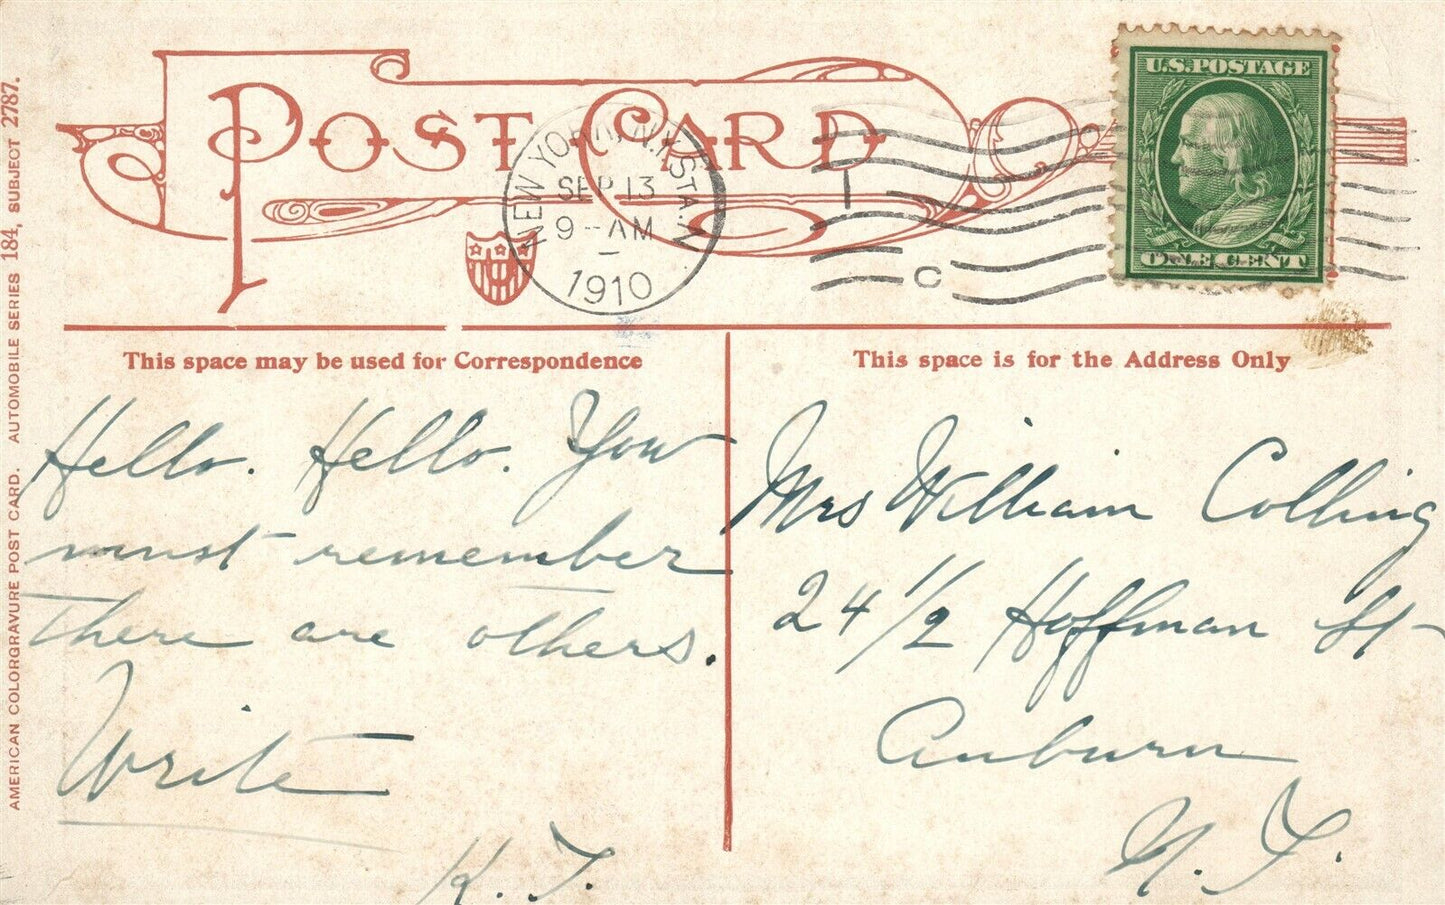 POST CARD
NEW YORK, N.Y. STA. N
SEP 13
9-AM
1910
C
U.S.POSTAGE
ONE CENT
AMERICAN COLORGRAVURE POST CARD. AUTOMOBILE SERIES 184, SUBJECT 2787.
This space may be used for Correspondence
Hello. Hello. You
must remember
there are others.
Write
This space is for the Address Only
Mrs William Colling
24 1/2 Hoffman St
Auburn
N. Y.